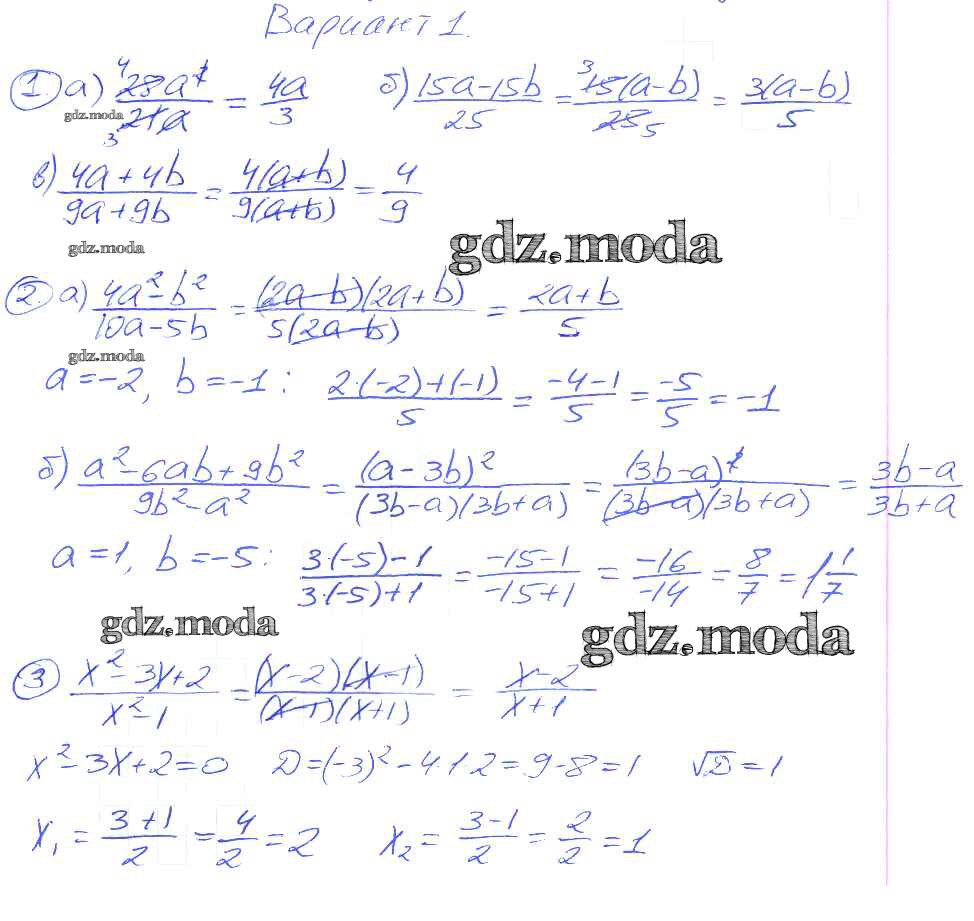 Вариант 1.
1. а) 28a²/21a = 4a/3 б) (15a-15b)/25 = 15(a-b)/25 = 3(a-b)/5
gdz.moda
в) (4a+4b)/(9a+9b) = 4(a+b)/9(a+b) = 4/9
gdz.moda gdz.moda
2. а) (4a²-b²)/(10a-5b) = (2a-b)(2a+b)/5(2a-b) = (2a+b)/5
gdz.moda
a=-2, b=-1: (2·(-2)+(-1))/5 = (-4-1)/5 = -5/5 = -1
б) (a²-6ab+9b²)/(9b²-a²) = (a-3b)²/(3b-a)(3b+a) = (3b-a)²/(3b-a)(3b+a) = (3b-a)/(3b+a)
a=1, b=-5: (3·(-5)-1)/(3·(-5)+1) = (-15-1)/(-15+1) = -16/-14 = 8/7 = 1 1/7
gdz.moda gdz.moda
3 (x²-3x+2)/(x²-1) = (x-2)(x-1)/(x-1)(x+1) = (x-2)/(x+1)
x²-3x+2=0 D=(-3)²-4·1·2=9-8=1 √D=1
x₁ = (3+1)/2 = 4/2 = 2 x₂ = (3-1)/2 = 2/2 = 1